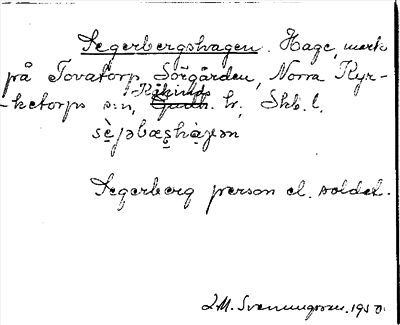 Segerbergshagen. Hage, mark
på Tovatorp Sörgården, Norra Kyr-
-ketorps s:n, Kåkinds hr, Skb. l.
Segerberg person el. soldat.
J.M. Svenungsson. 1950.